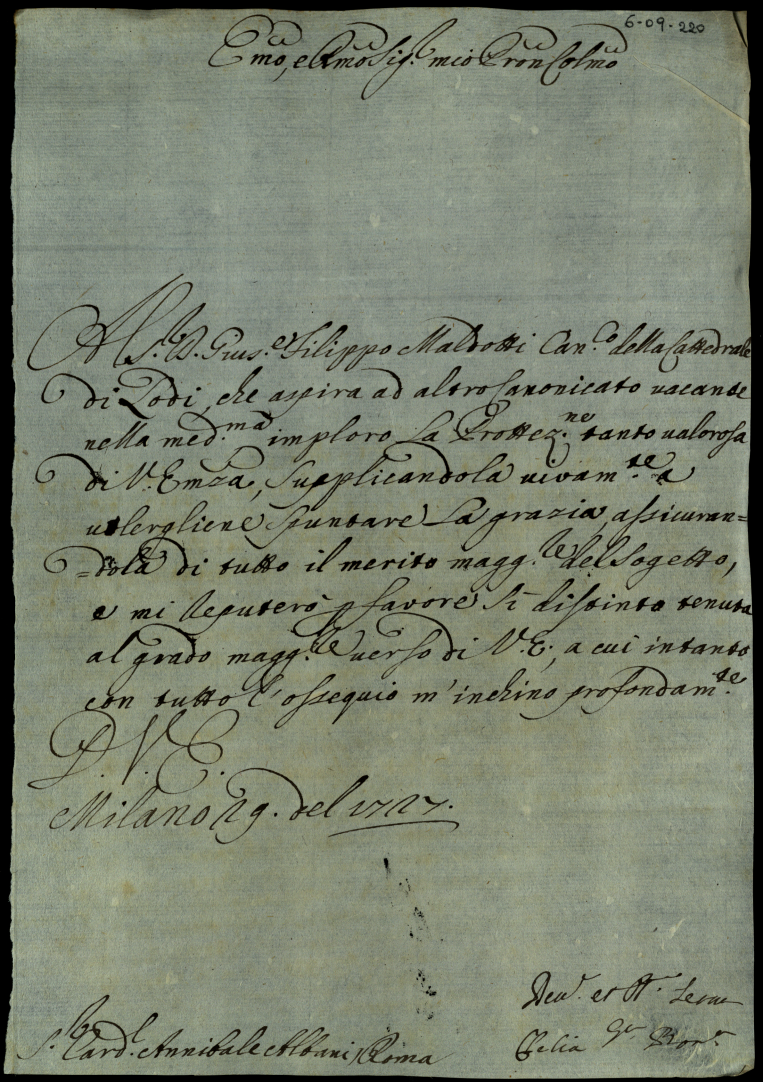 6-09-220
Em̃o, e Rm̃o Sig.r mio Pron Colmo
Al S.r D. Gius.e Filippo Maldotti Can.co della Cattedrale
di Lodi, che aspira ad altro Canonicato vacante
nella med.ma imploro la Prottez.ne tanto valorosa
di V. Emza, supplicandola vivam.te a
volergliene spuntare la grazia, assicuran=
=dola di tutto il merito magg.re del sogetto,
e mi reputerò p favore sì distinto tenuta
al grado magg.re verso di V. E., a cui intanto
con tutto l'ossequio m'inchino profondam.te
D. V. E.
Milano 29. del 1727.
Dev. et Serva
Clelia Bor.
S.r Card.l Annibale Albani Roma